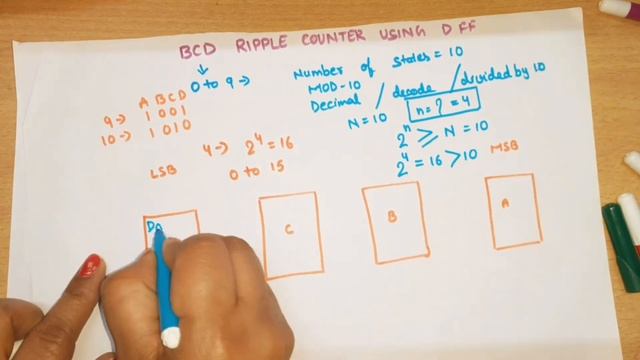 BCD RIPPLE COUNTER USING D FF
0 to 9 →
Number of states = 10
MOD-10 / decode / divided by 10
Decimal
N = 10
n = ? = 4
A B C D
9 → 1 0 0 1
10 → 1 0 1 0
4 → 2^4 = 16
0 to 15
2^n ≥ N = 10
2^4 = 16 > 10
LSB
MSB
C
B
A